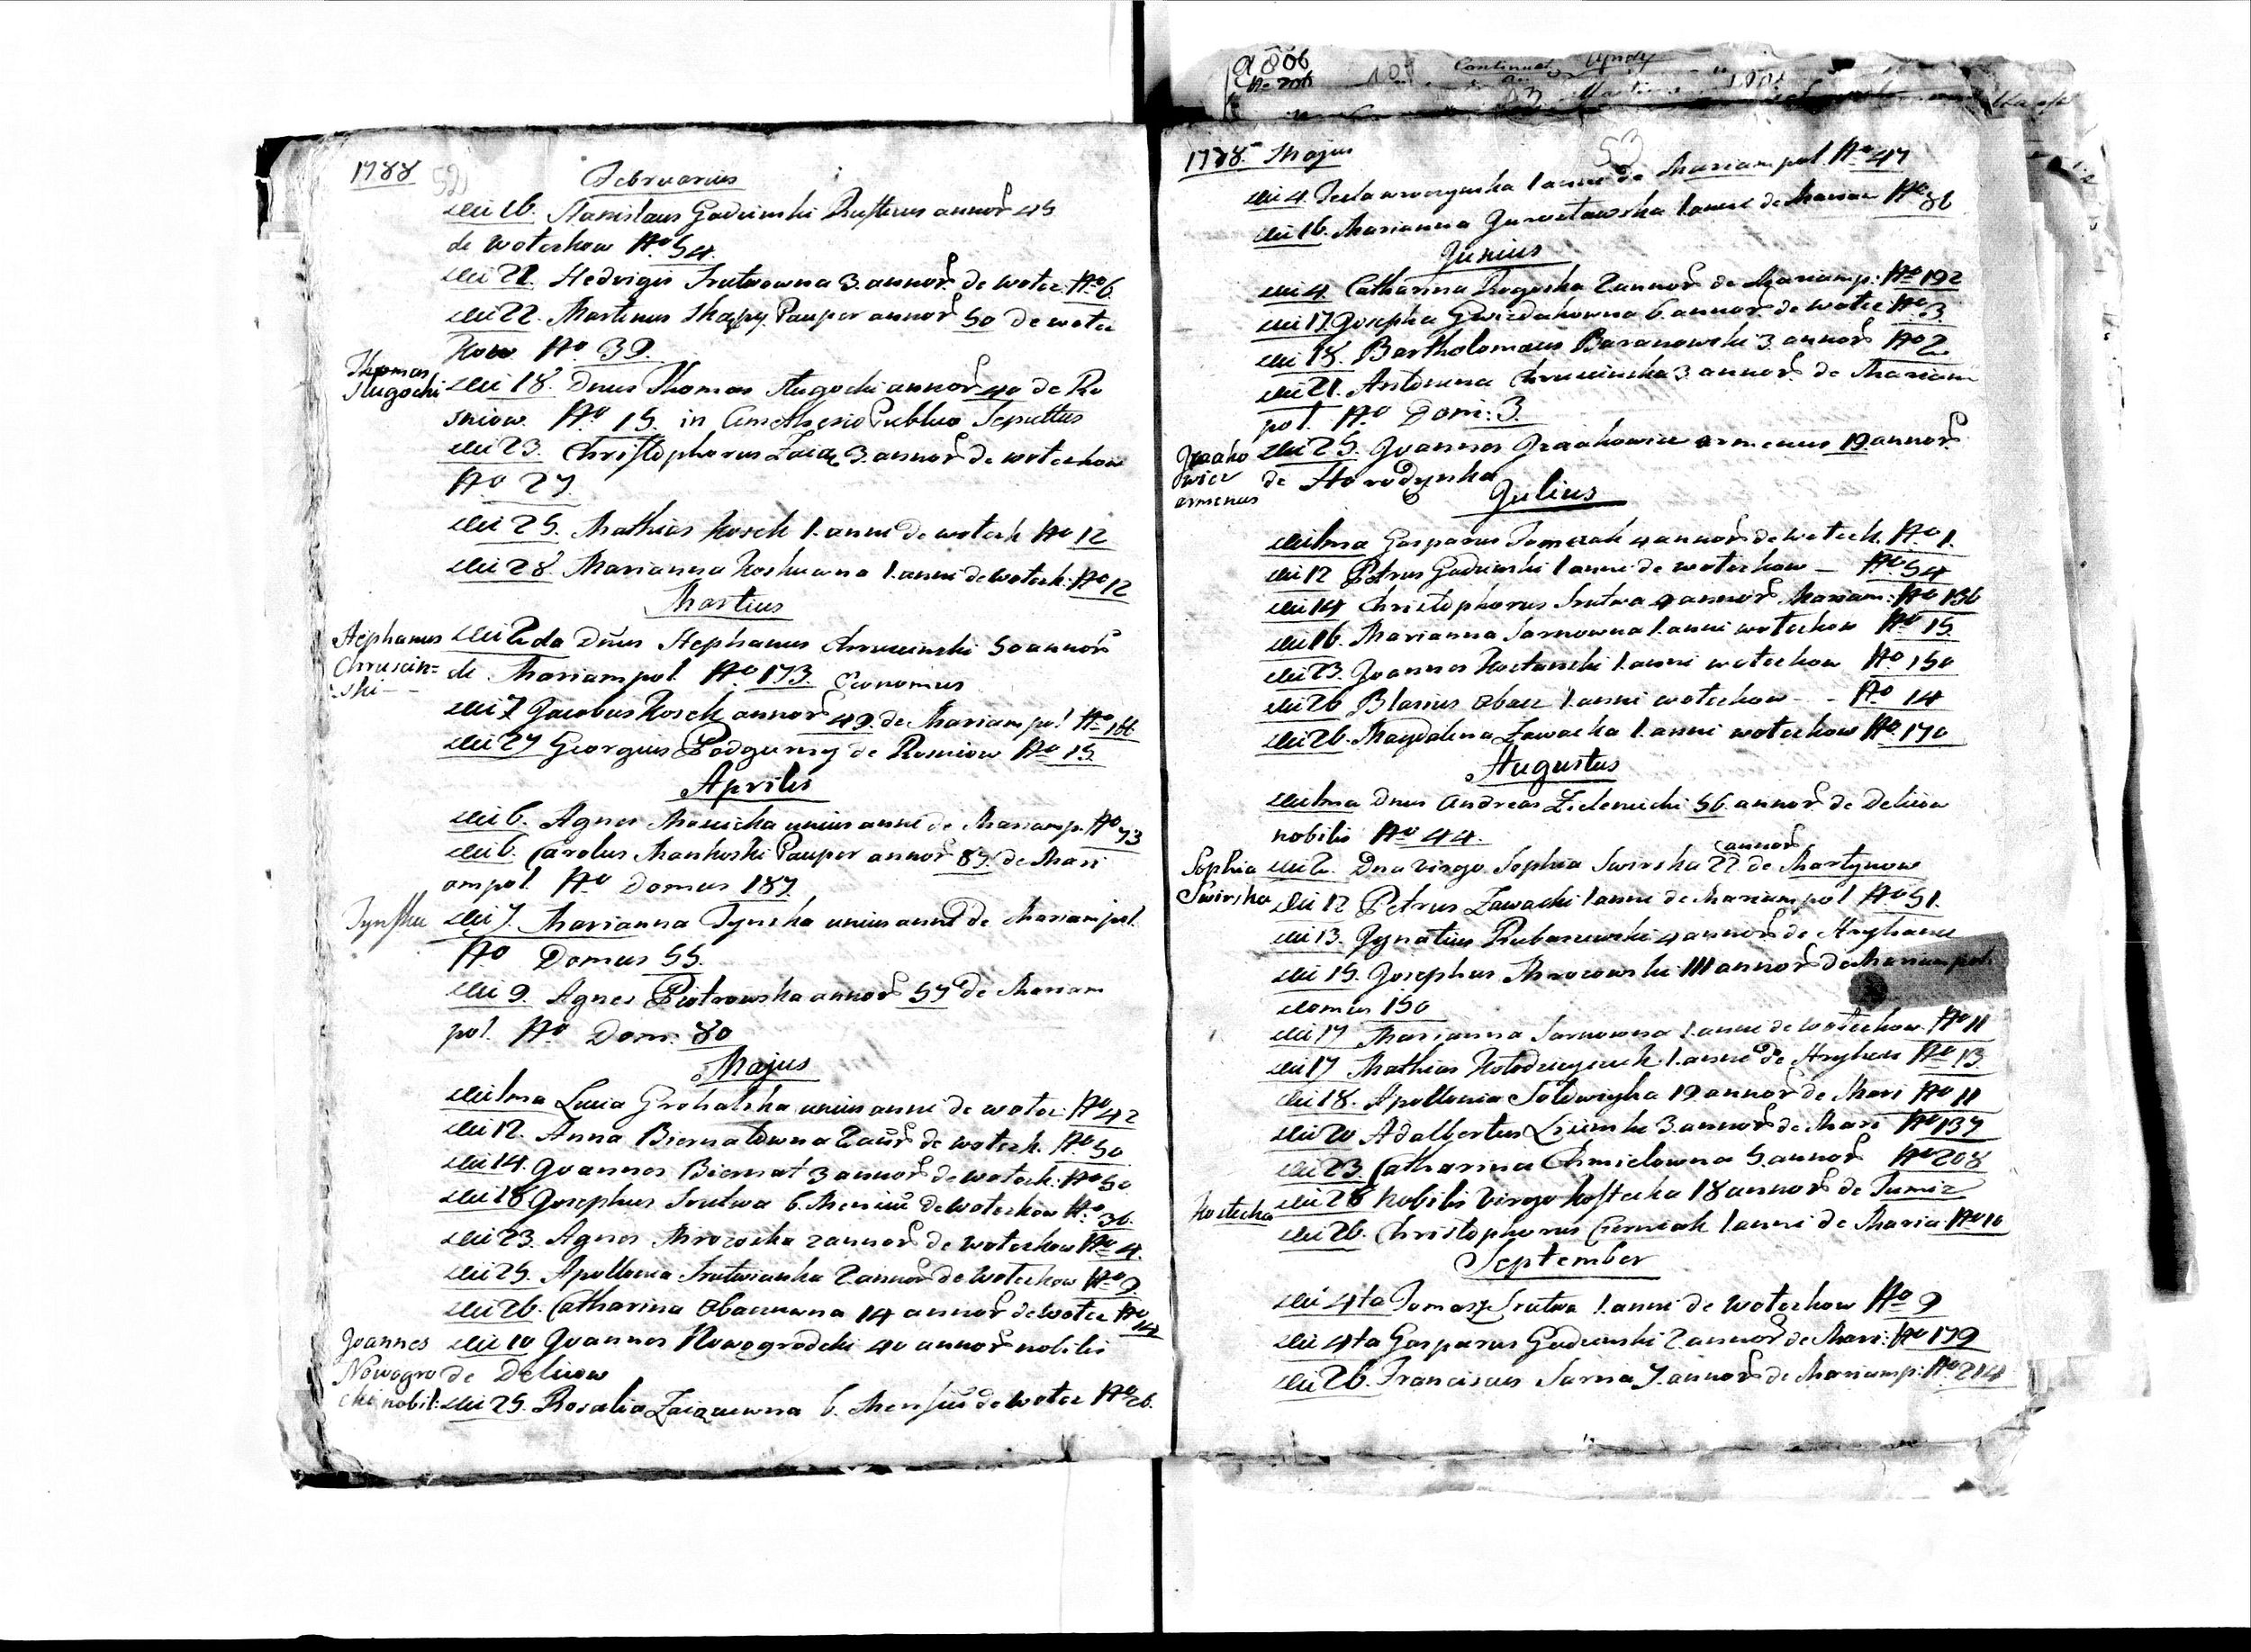 1788 52
Februarius
Die 16. Stanislaus Gadzinski Rusticus annor 45
de Wotczkow No 54.
Die 21. Hedvigis Srutwowna 3. annor. de Wotcz. No 6.
Die 22. Martinus Skąpy Pauper annor 50 de Wotcz
kow No 39.
Thomas
Stugocki
Die 18. Dnus Thomas Stugocki annor 40 de Ro
sniow No 15. in Cmetherio Publico Sepultus
Die 23. Christophorus Zaiąc 3. annor de Wotczkow
No 27
Die 25. Mathias Kosek 1. anni de Wotczk No 12
Die 28. Marianna Koskowna 1. anni de Wotczk: No 12
Martius
Stephanus
Chruscin=
ski
Die 2da Dnus Stephanus Chruscinski 50 annor
de Mariampol No 173. Economus
Die 7 Jacobus Kosek annor 49. de Mariampol No 166
Die 27 Georgius Podgurny de Rosniow No 15.
Aprilis
Die 6. Agnes unius anni de Mariamp. No 73
Die 6. Carolus Mankoski Pauper annor 87. de Mari
ampol. No Domus 187.
Tynska
Die 7. Marianna Tynska unius anni de Mariampol.
No Domus 55.
Die 9. Agnes Piotrowska annor 57 de Mariam
pol. No Dom. 80
Majus
Die 1ma Lucia Grohalska unius anni de Wotcz: No 42
Die 12. Anna Biernatowna 2 anr de Wotczk. No 50
Die 14. Joannes Biernat 3 annor de Wotczk: No 50
Die 18 Josephus Srutwa 6. Mensiu de Wotczkow No 36.
Die 23. Agnes Mrozoska 2 annor de Wotczkow No 4.
Die 25. Apollonia Srutwianka 2 annor de Wotczkow No 9
Die 26. Catharina Obaczowna 14 annor de Wotcz No 14
Joannes
Nowogro
cki nobil:
Die 10 Joannes Nowogrodcki 40 annor nobilis
de Deliiow
Die 25. Rosalia Zaiączowna 6. Mensiu de Wotcz No 26.
a 806
Continuat
1788. Majus 53
Die 4. Tecla 1 anni de Mariampol. No 47
Die 16. Marianna 1. anni de Mariam No 86
Junius
Die 4. Catharina Rogoska 2 annor de Mariamp: No 192
Die 17. Josepha Gwizdakowna 6. annor de Wotcz No 3.
Die 18. Bartholomaeus Baranowski 3. annor No 2
Die 21. Antonina Chruscinska 3. annor. de Mariam
pol. No Domi: 3.
armenus
Die 25. Joannes armenus 19. annor
de Horodynka
Julius
Die 1ma Gasparus Tomczak 4 annor de Wotczk. No 1.
Die 12 Petrus Gadzinski 1 anni de Wotczkow – No 54
Die 14 Christophorus Srutwa 4 annor Mariam: No 136
Die 16. Marianna Sarnowna 1. anni Wotczkow No 15.
Die 23. Joannes Koctanski 1. anni Wotczkow No 150
Die 26 Blasius Obacz 1 anni Wotczkow - - No 14
Die 26. Magdalena Zawacka 1. anni Wotczkow No 170
Augustus
Die 1ma Dnus Andreas Zieleniecki 56. annor de Deliiow
nobilis No 44.
Sophia
Swirska
Die 2. Dna Virgo Sophia Swirska 22 annor de Martynow
Die 12 Petrus Zawacki 1 anni de Mariampol No 51.
Die 13. Ignatius 4 annor de
Die 15. Josephus Mrozowski III annor de Mariampol.
Domus 150
Die 17 Marianna Sarnowna 1. anni de Wotczkow. No 11
Die 17 Mathias 1. anni de No 13
Die 18. Apollonia 19 annor de Mari No 11
Die 20 Adalbertus 3. annor de Mari No 137
Die 23. Catharina Chmielowna 5. annor No 208
Kostecka
Die 28 Nobilis Virgo Kostecka 18 annor de Tumir
Die 26. Christophorus Czerniak 1 anni de Maria No 10
September
Die 4ta Tomasz Srutwa 1. anni de Wotczkow No 9
Die 4ta Gasparus Gadzinski 2 annor de Mari: No 179
Die 26. Franciscus Sarna 7. annor de Mariamp: No 214